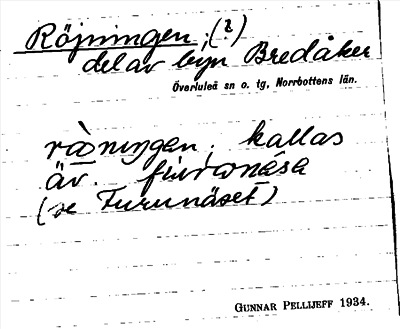 Röjningen; (?)
del av byn Bredåker
Överluleå sn o. tg, Norrbottens län.
kallas
äv.
(se Furunäset)
GUNNAR PELLIJEFF 1934.